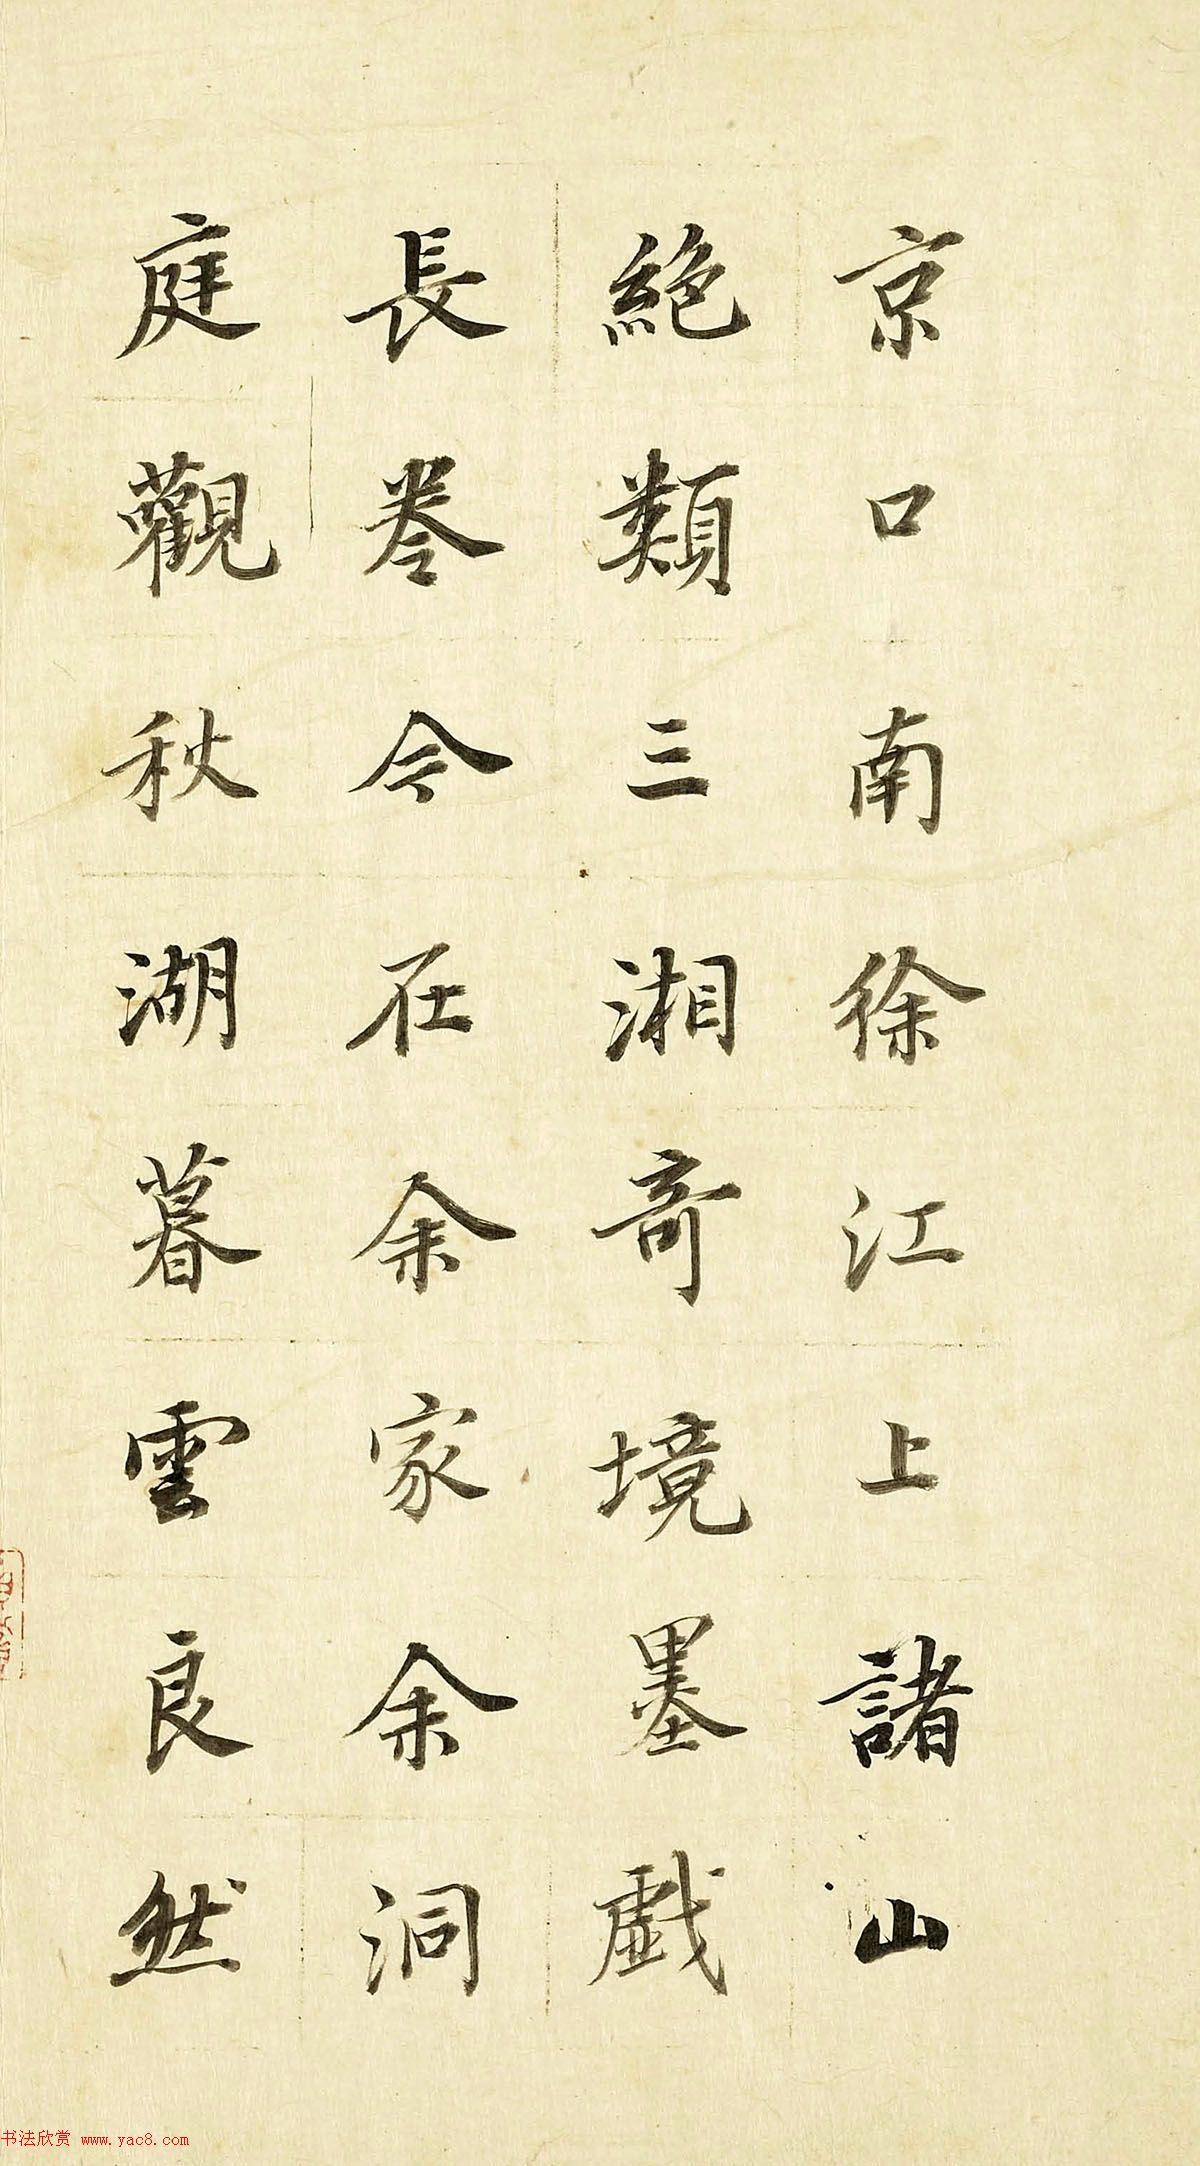 京口南徐江上諸山
絕類三湘奇境墨戲
長卷今在余家余洞
庭觀秋湖暮雲良然
书法欣赏 www.yac8.com